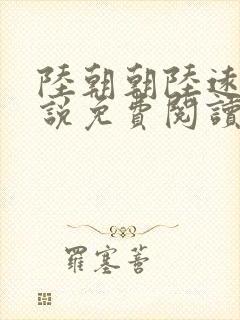 陸朝朝陸遠
說免費閱讀
羅塞菩